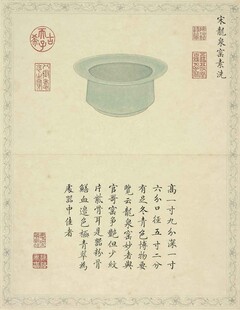 宋龍泉窰素洗
高一寸九分深一寸
六分口徑五寸二分
有足冬青色博物要
覽云龍泉窰妙者與
官哥窰爭艷但少紋
片紫骨耳是器粉骨
鱔血邊色極青翠為
處器中佳者
古希天子